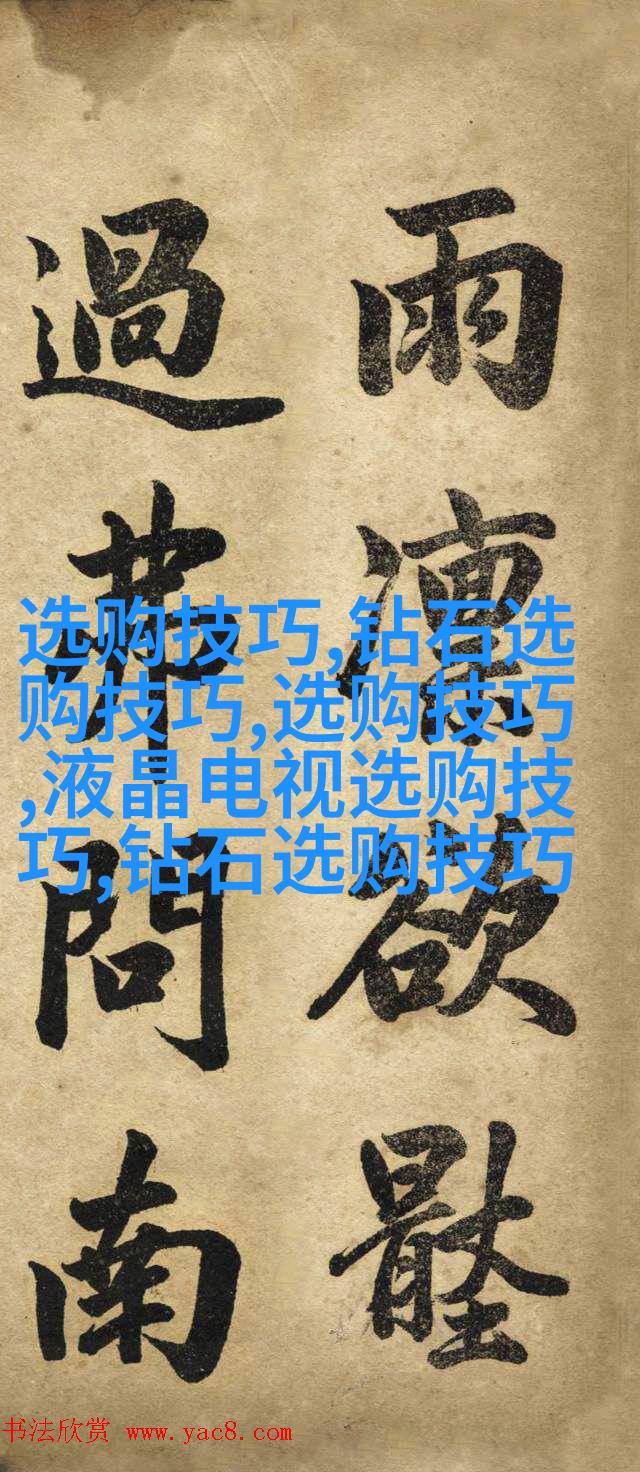 雨凛欲
過問南
选购技巧,钻石选
购技巧,选购技巧
,液晶电视选购技
巧,钻石选购技巧
书法欣赏 www.yac8.com